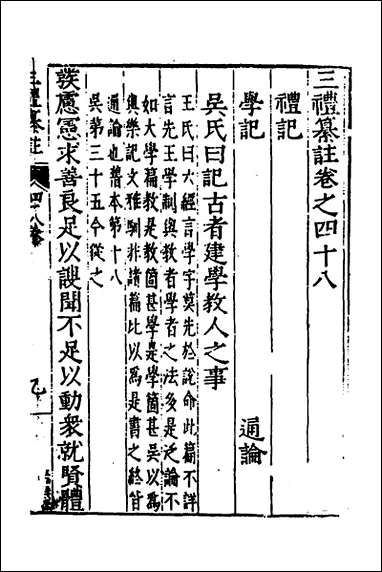 三禮纂註卷之四十八
禮記
學記　通論
吳氏曰記古者建學教人之事
王氏曰六經言學字莫先於說命此篇不詳
言先王學制與教者學者之法多是泛論不
如大學篇教是教箇甚學是學箇甚吳以為
與樂記文雅馴非諸篇比以為是書之終皆
通論也舊本第十八
吳第三十五今從之
發慮憲求善良足以謏聞不足以動衆就賢體
三禮纂註